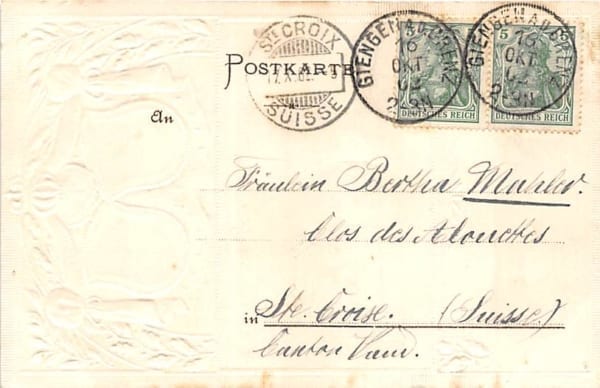 POSTKARTE
Ste CROIX
17.X.02.-9
SUISSE
GIENGEN A.D.BRENZ
16
OKT
02
2-3N
GIENGEN A.D.BRENZ
16
OKT
02
2-3N
5 5
DEUTSCHES REICH
5 5
DEUTSCHES REICH
An
Fräulein Bertha Mahler.
Clos des Alouettes
in Ste. Croise. (Suisse.)
Canton Vaud.